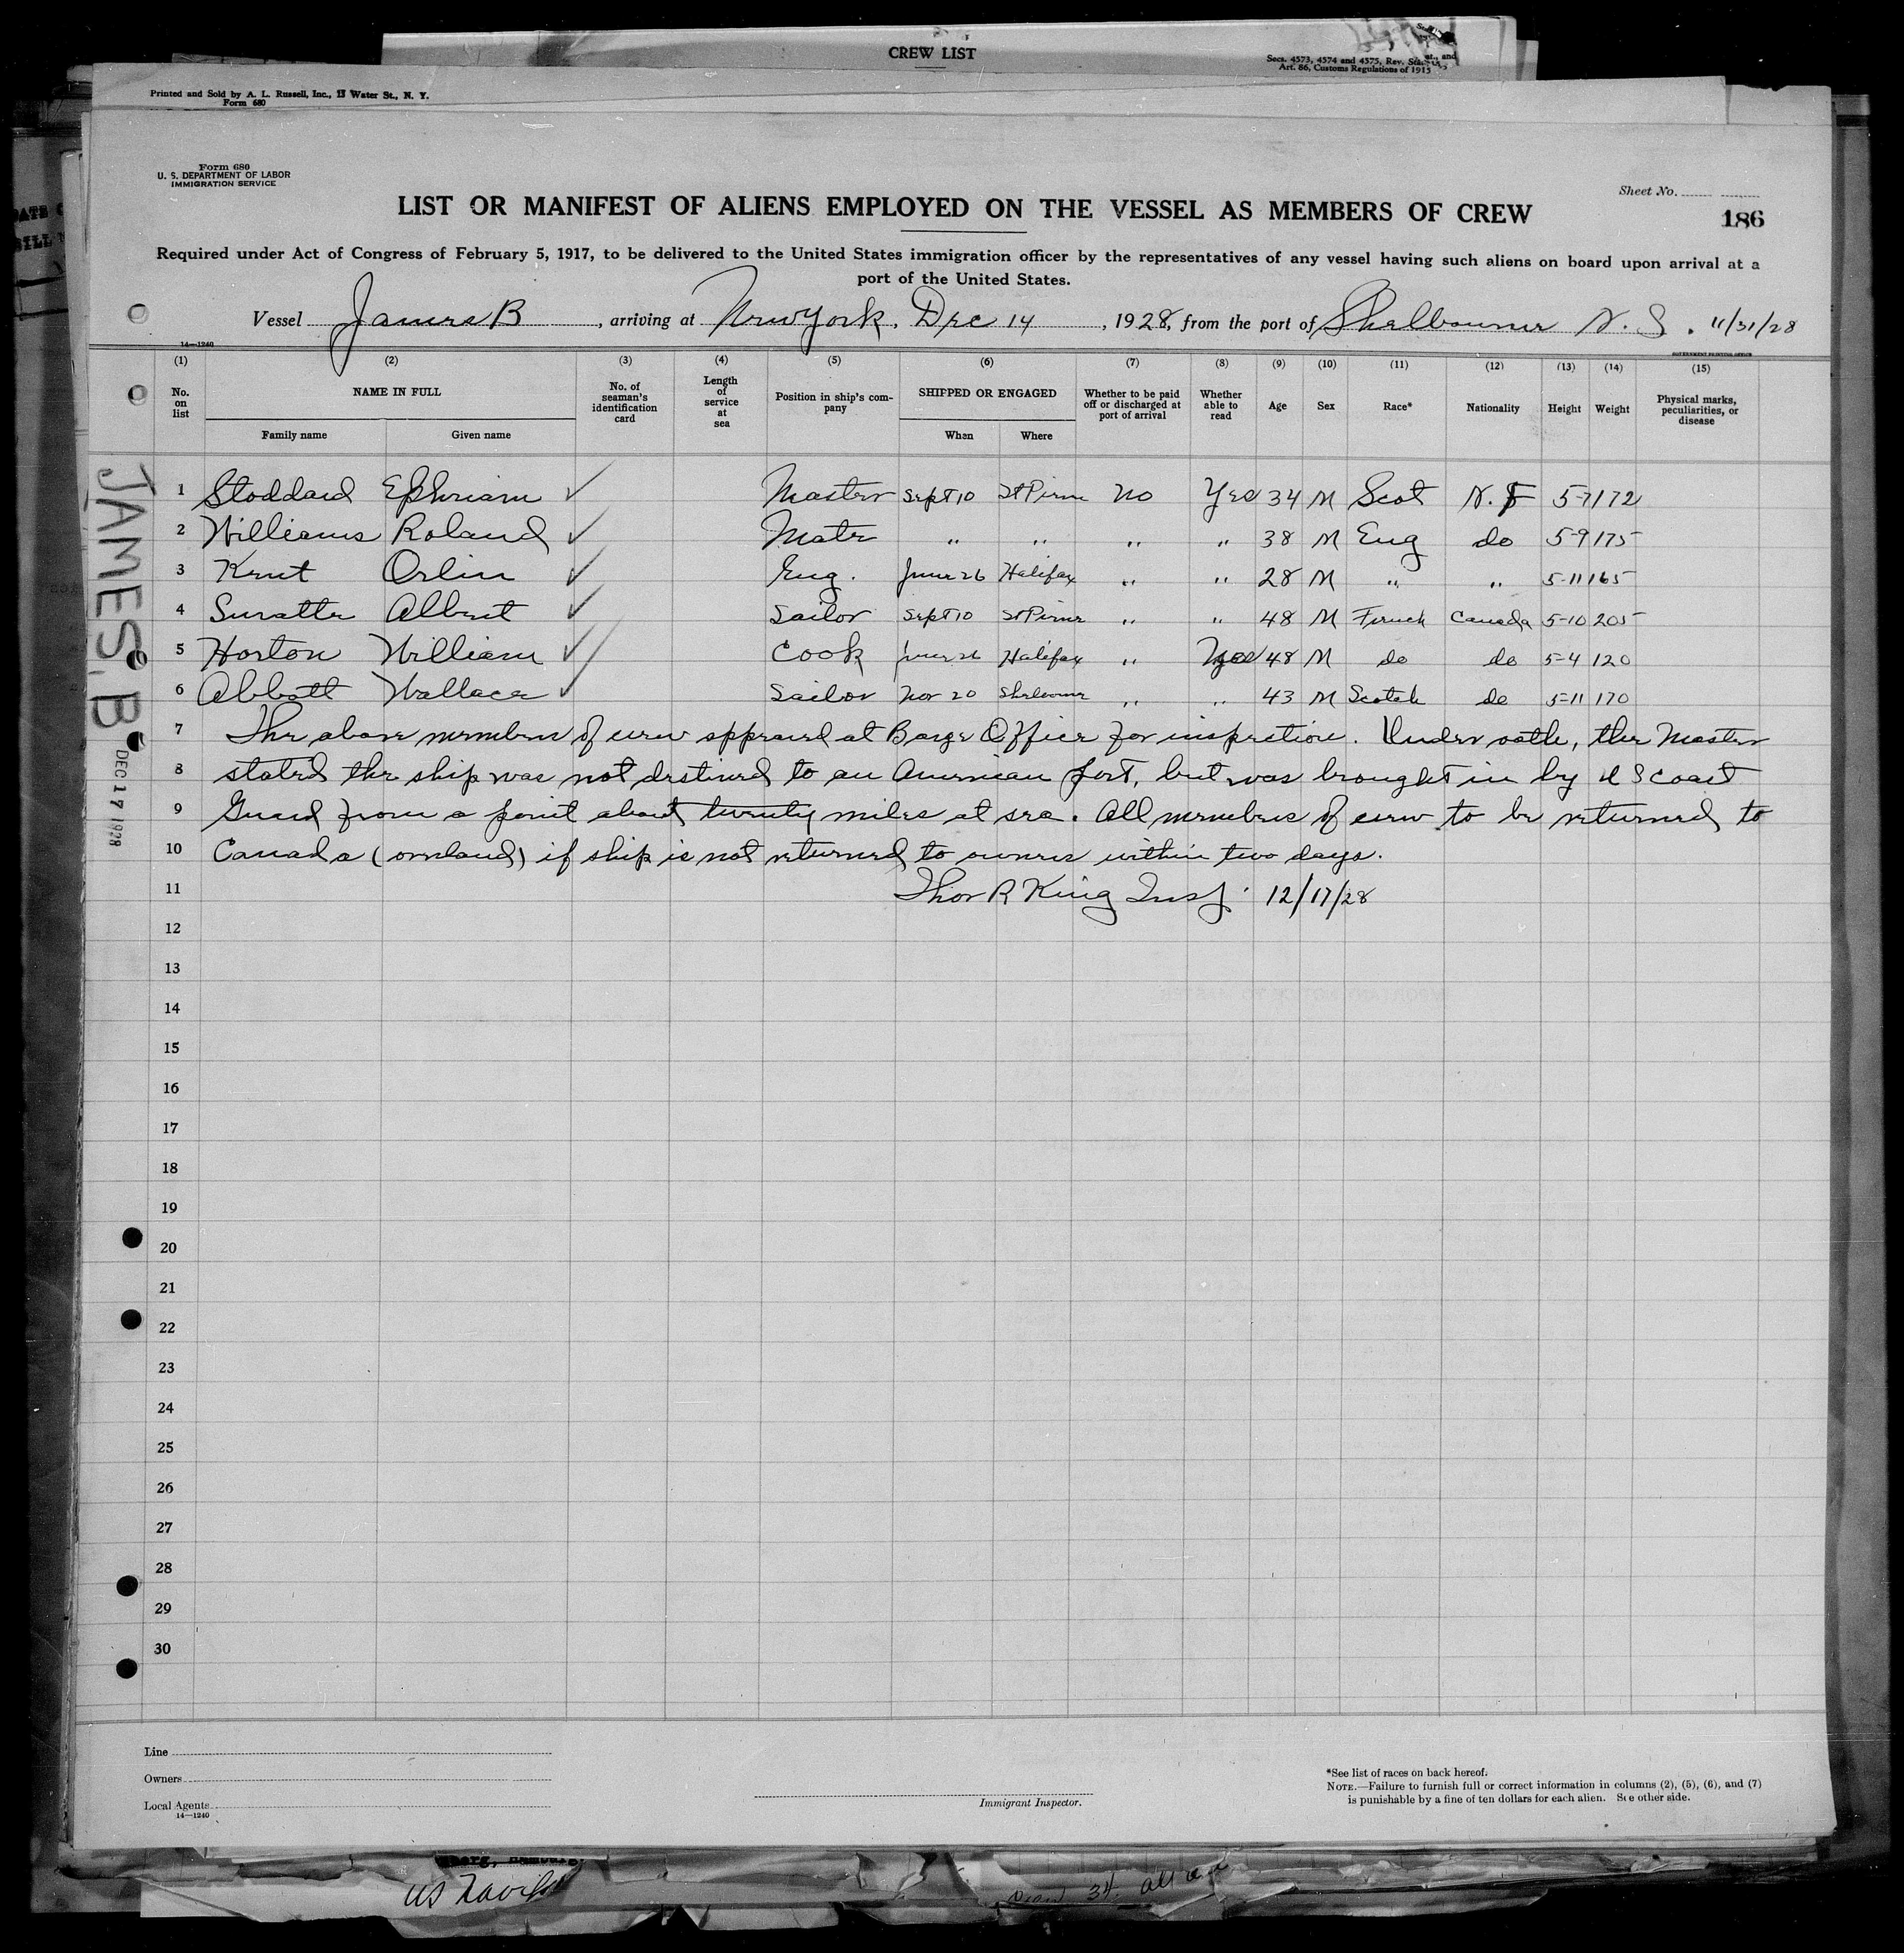 CREW LIST
Secs. 4573, 4574 and 4575, Rev. Stat., and
Art. 86, Customs Regulations of 1915
Printed and Sold by A. L. Russell, Inc., Water St., N. Y.
Form 680
Form 680
U. S. DEPARTMENT OF LABOR
IMMIGRATION SERVICE
Sheet No.
LIST OR MANIFEST OF ALIENS EMPLOYED ON THE VESSEL AS MEMBERS OF CREW
186
Required under Act of Congress of February 5, 1917, to be delivered to the United States immigration officer by the representatives of any vessel having such aliens on board upon arrival at a
port of the United States.
Vessel James B, arriving at New York, Dec 14, 1928, from the port of Shelbourne N. S. 11/31/28
14—1240 GOVERNMENT PRINTING OFFICE
(1) (2) (3) (4) (5) (6) (7) (8) (9) (10) (11) (12) (13) (14) (15)
No. on list NAME IN FULL No. of seaman's identification card Length of service at sea Position in ship's company SHIPPED OR ENGAGED Whether to be paid off or discharged at port of arrival Whether able to read Age Sex Race* Nationality Height Weight Physical marks, peculiarities, or disease
Family name Given name When Where
1 Stoddard Ephriam ✓ Master Sept 10 St Pierre No Yes 34 M Scot N.F 5-7 172
2 Williams Roland ✓ Mate " " " " 38 M Eng do 5-9 175
3 Kent Orlin ✓ Eng. June 26 Halifax " " 28 M " " 5-11 165
4 Surette Albert ✓ Sailor Sept 10 St Pierre " " 48 M French Canada 5-10 205
5 Horton William ✓ Cook June 26 Halifax " Yes 48 M do do 5-4 120
6 Abbott Wallace ✓ Sailor Nov 20 Shelbourne " " 43 M Scotch do 5-11 170
7 The above members of crew appeared at Barge Office for inspection. Under oath, the Master
8 stated the ship was not destined to an American port, but was brought in by U S Coast
9 Guard from a point about twenty miles at sea. All members of crew to be returned to
10 Canada (overland) if ship is not returned to owners within two days.
11 Thos R King Insp. 12/17/28
12
13
14
15
16
17
18
19
20
21
22
23
24
25
26
27
28
29
30
JAMES. B.
DEC 17 1928
Line
Owners
Local Agents
14—1240
Immigrant Inspector.
*See list of races on back hereof.
NOTE.—Failure to furnish full or correct information in columns (2), (5), (6), and (7)
is punishable by a fine of ten dollars for each alien. See other side.